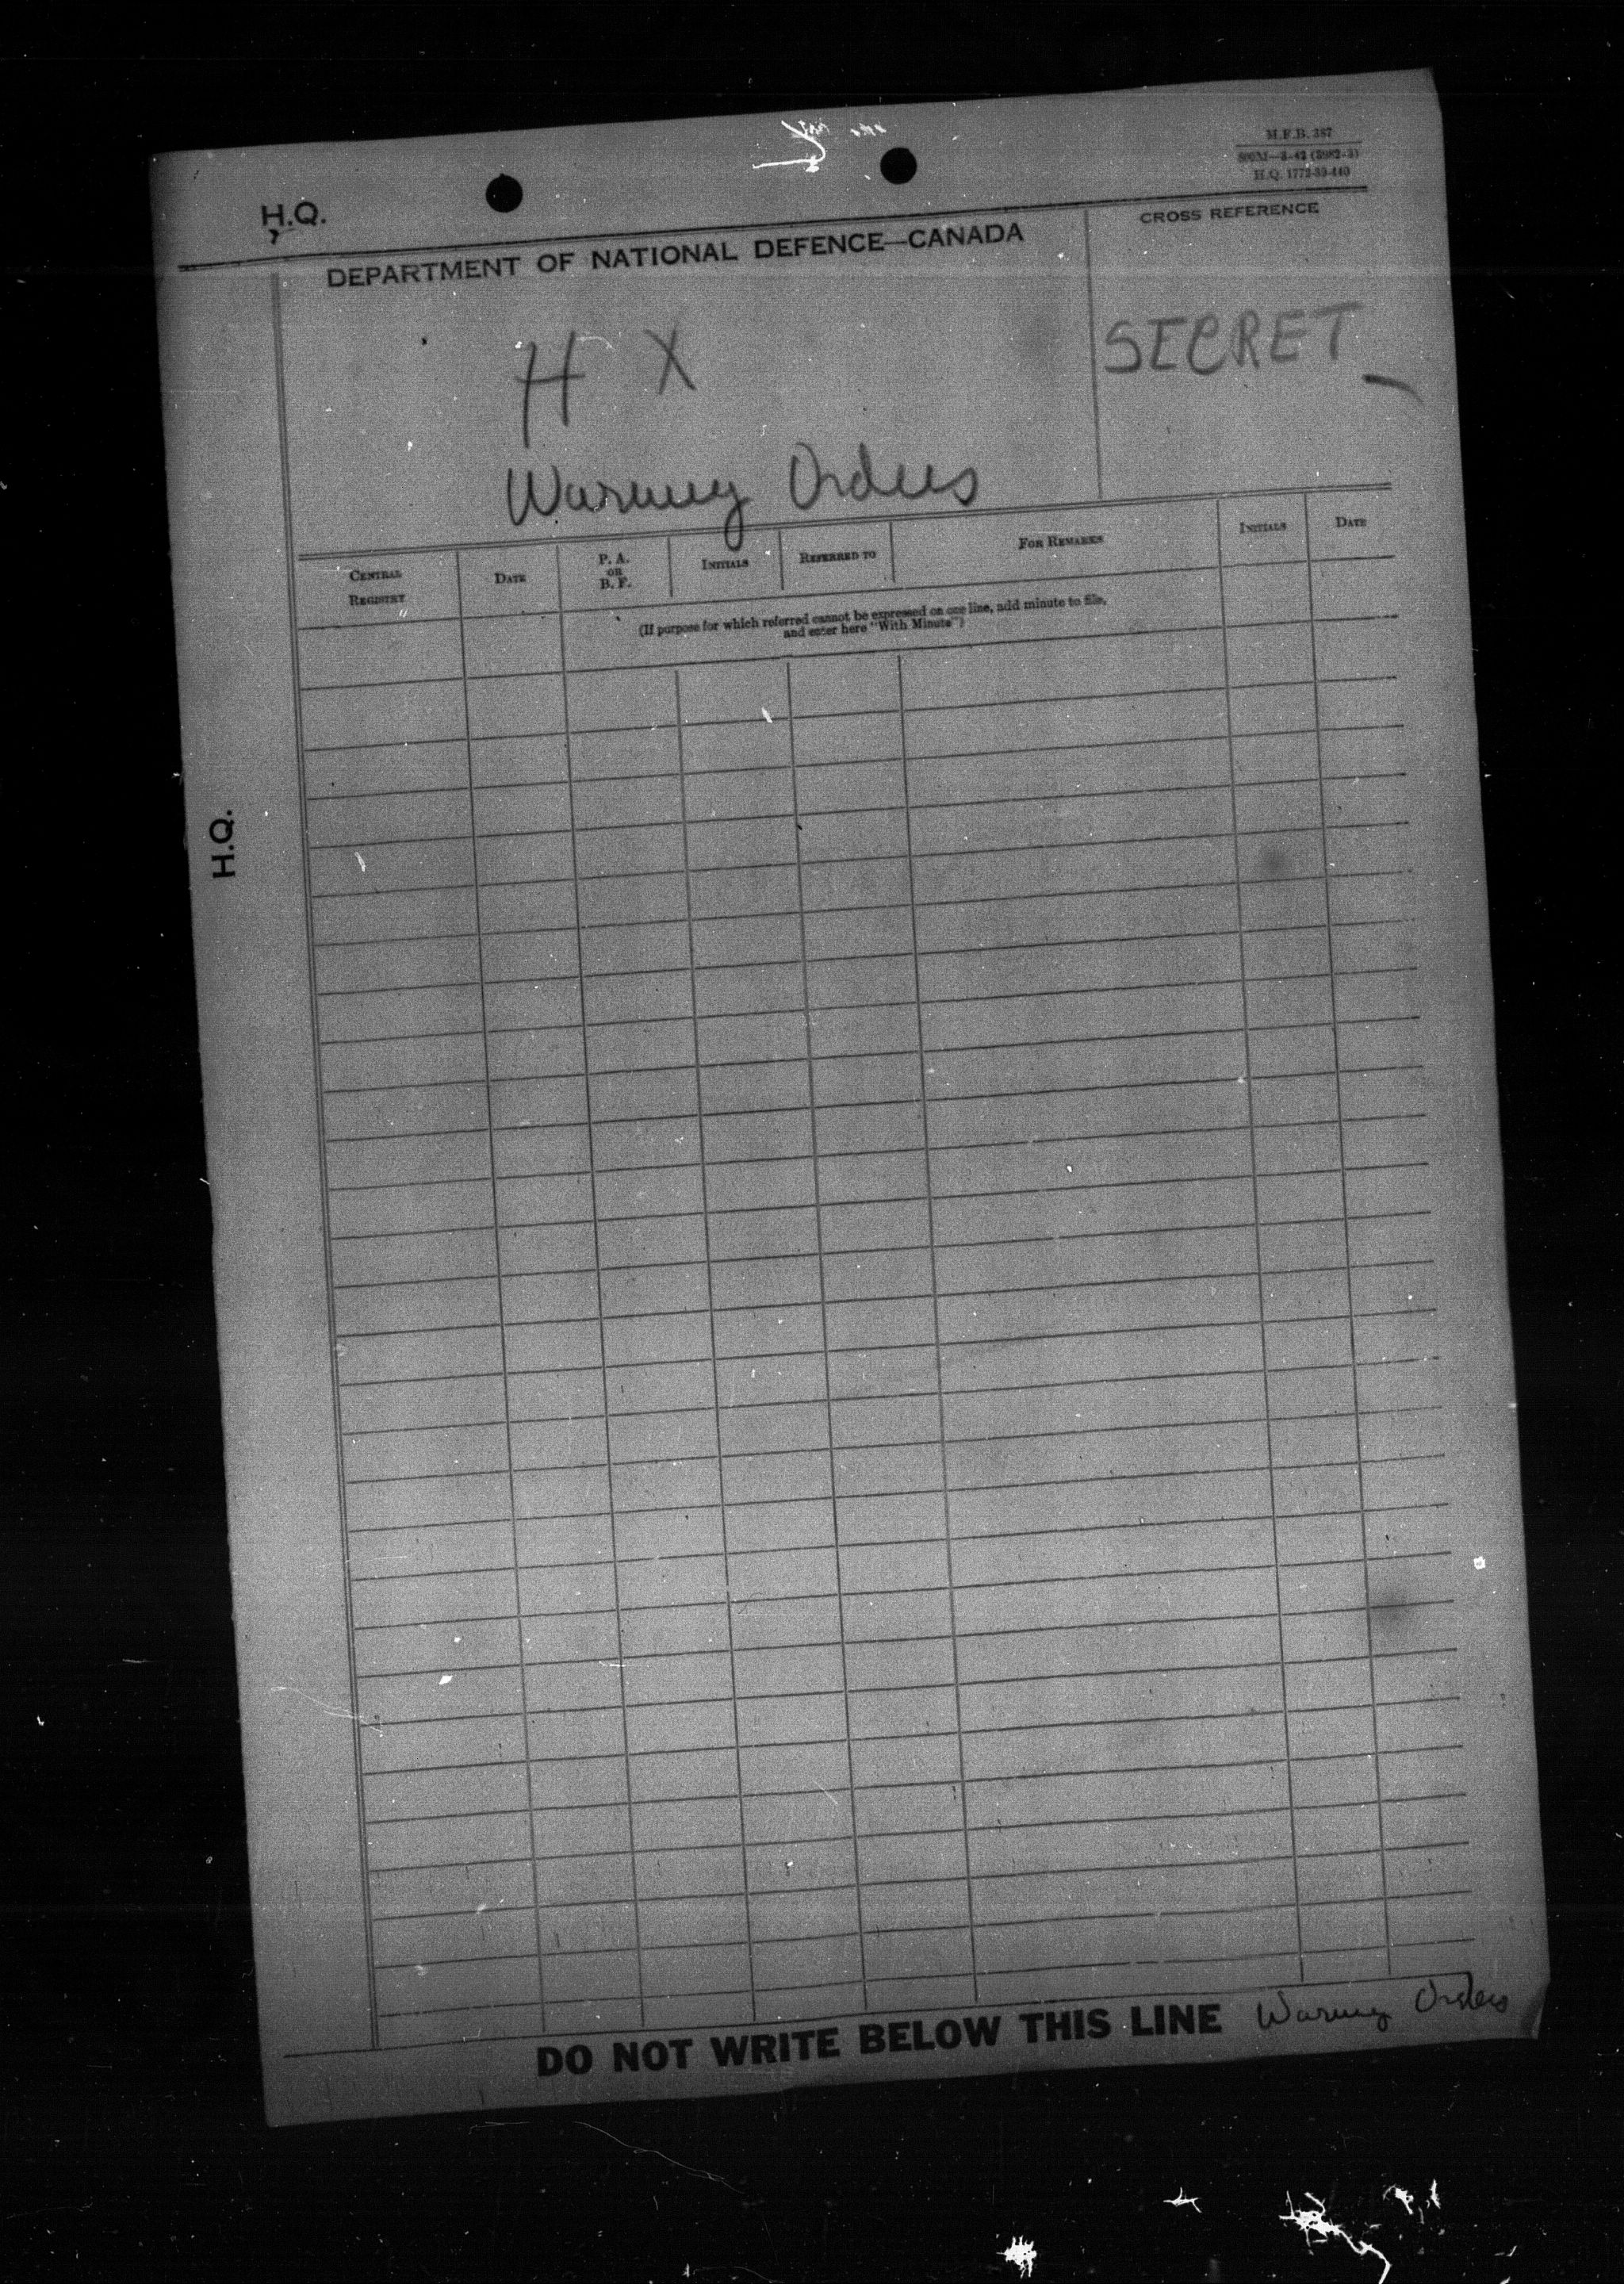 M.F.B. 387
500M—3-42 (3982-3)
H.Q. 1772-39-440
H.Q.
DEPARTMENT OF NATIONAL DEFENCE—CANADA
CROSS REFERENCE
H X
SECRET
Warning Orders
CENTRAL REGISTRY
DATE
P. A. OR B. F.
INITIALS
REFERRED TO
FOR REMARKS
INITIALS
DATE
(If purpose for which referred cannot be expressed on one line, add minute to file,
and enter here "With Minute")
H.Q.
DO NOT WRITE BELOW THIS LINE
Warning Orders